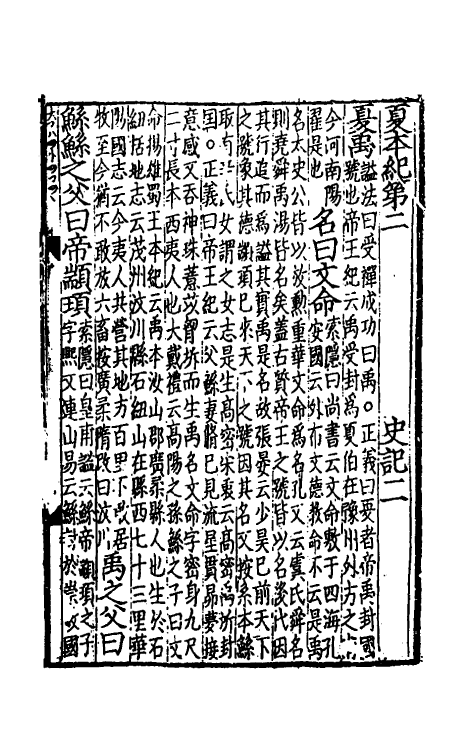 夏本紀第二 史記二
夏禹謚法曰受禪成功曰禹。正義曰夏者帝禹封國
號也帝王紀云禹受封爲夏伯在豫州外方之
今河南陽翟是也名曰文命索隱曰尚書云文命敷于四海孔安國云外布文德教命不云是禹
名太史公皆以放勳重華文命爲名孔又云虞氏舜名
則堯舜禹湯皆名矣蓋古賢帝王之號皆以名後代因
其行追而爲謚其實禹是名故張晏云少昊已前天下
之號象其德顓頊已來天下之號因其名又按系本鯀
取有 氏女謂之女志是生高密宋衷云高密禹所封
國。正義曰帝王紀云父鯀妻脩己見流星貫昴夢接
意感又吞神珠薏苡胷坼而生禹名文命字密身九尺
二寸長本西夷人也大戴禮云高陽之孫鯀之子曰文
命揚雄蜀王本紀云禹本汶山郡廣柔縣人也生於石
紐括地志云茂州汶川縣石紐山在縣西七十三里華
陽國志云今夷人共營其地方百里不敢居
牧至今猶不敢放六畜按廣柔隋改曰汶川禹之父曰
鯀鯀之父曰帝顓頊索隱曰皇甫謐云鯀帝顓頊之子字熙又連山易云鯀封於崇 國